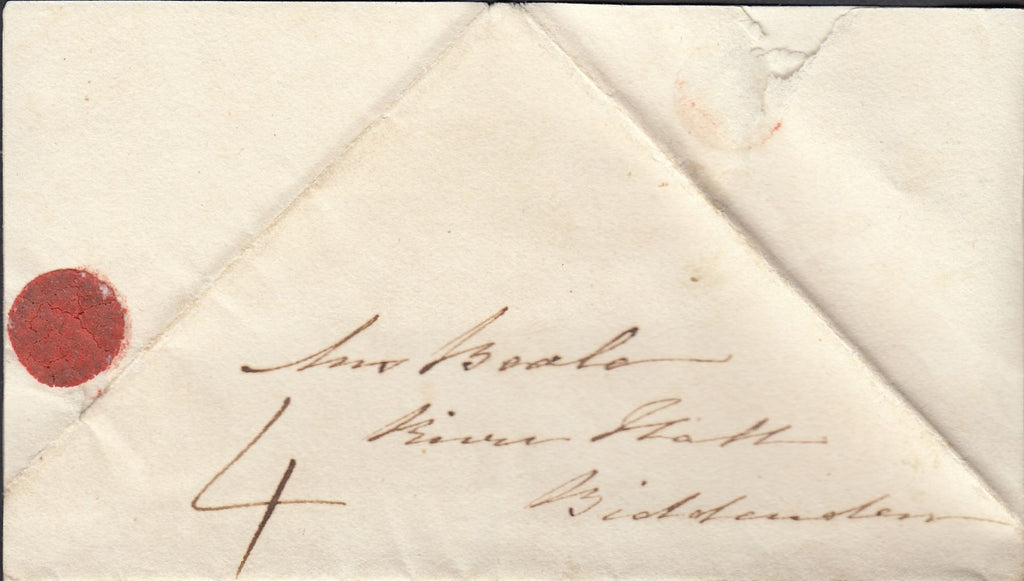 Mrs Beale
River Hall
Biddenden
4